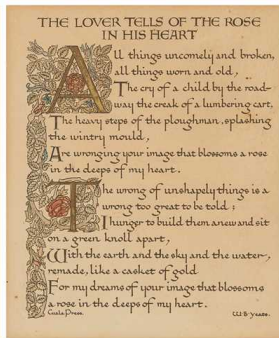 THE LOVER TELLS OF THE ROSE
IN HIS HEART
All things uncomely and broken,
all things worn and old,
The cry of a child by the road-
way the creak of a lumbering cart,
The heavy steps of the ploughman, splashing
the wintry mould,
Are wronging your image that blossoms a rose
in the deeps of my heart.
The wrong of unshapely things is a
wrong too great to be told;
I hunger to build them anew and sit
on a green knoll apart,
With the earth and the sky and the water,
remade, like a casket of gold
For my dreams of your image that blossoms
a rose in the deeps of my heart.
Cuala Press. W.B. Yeats.